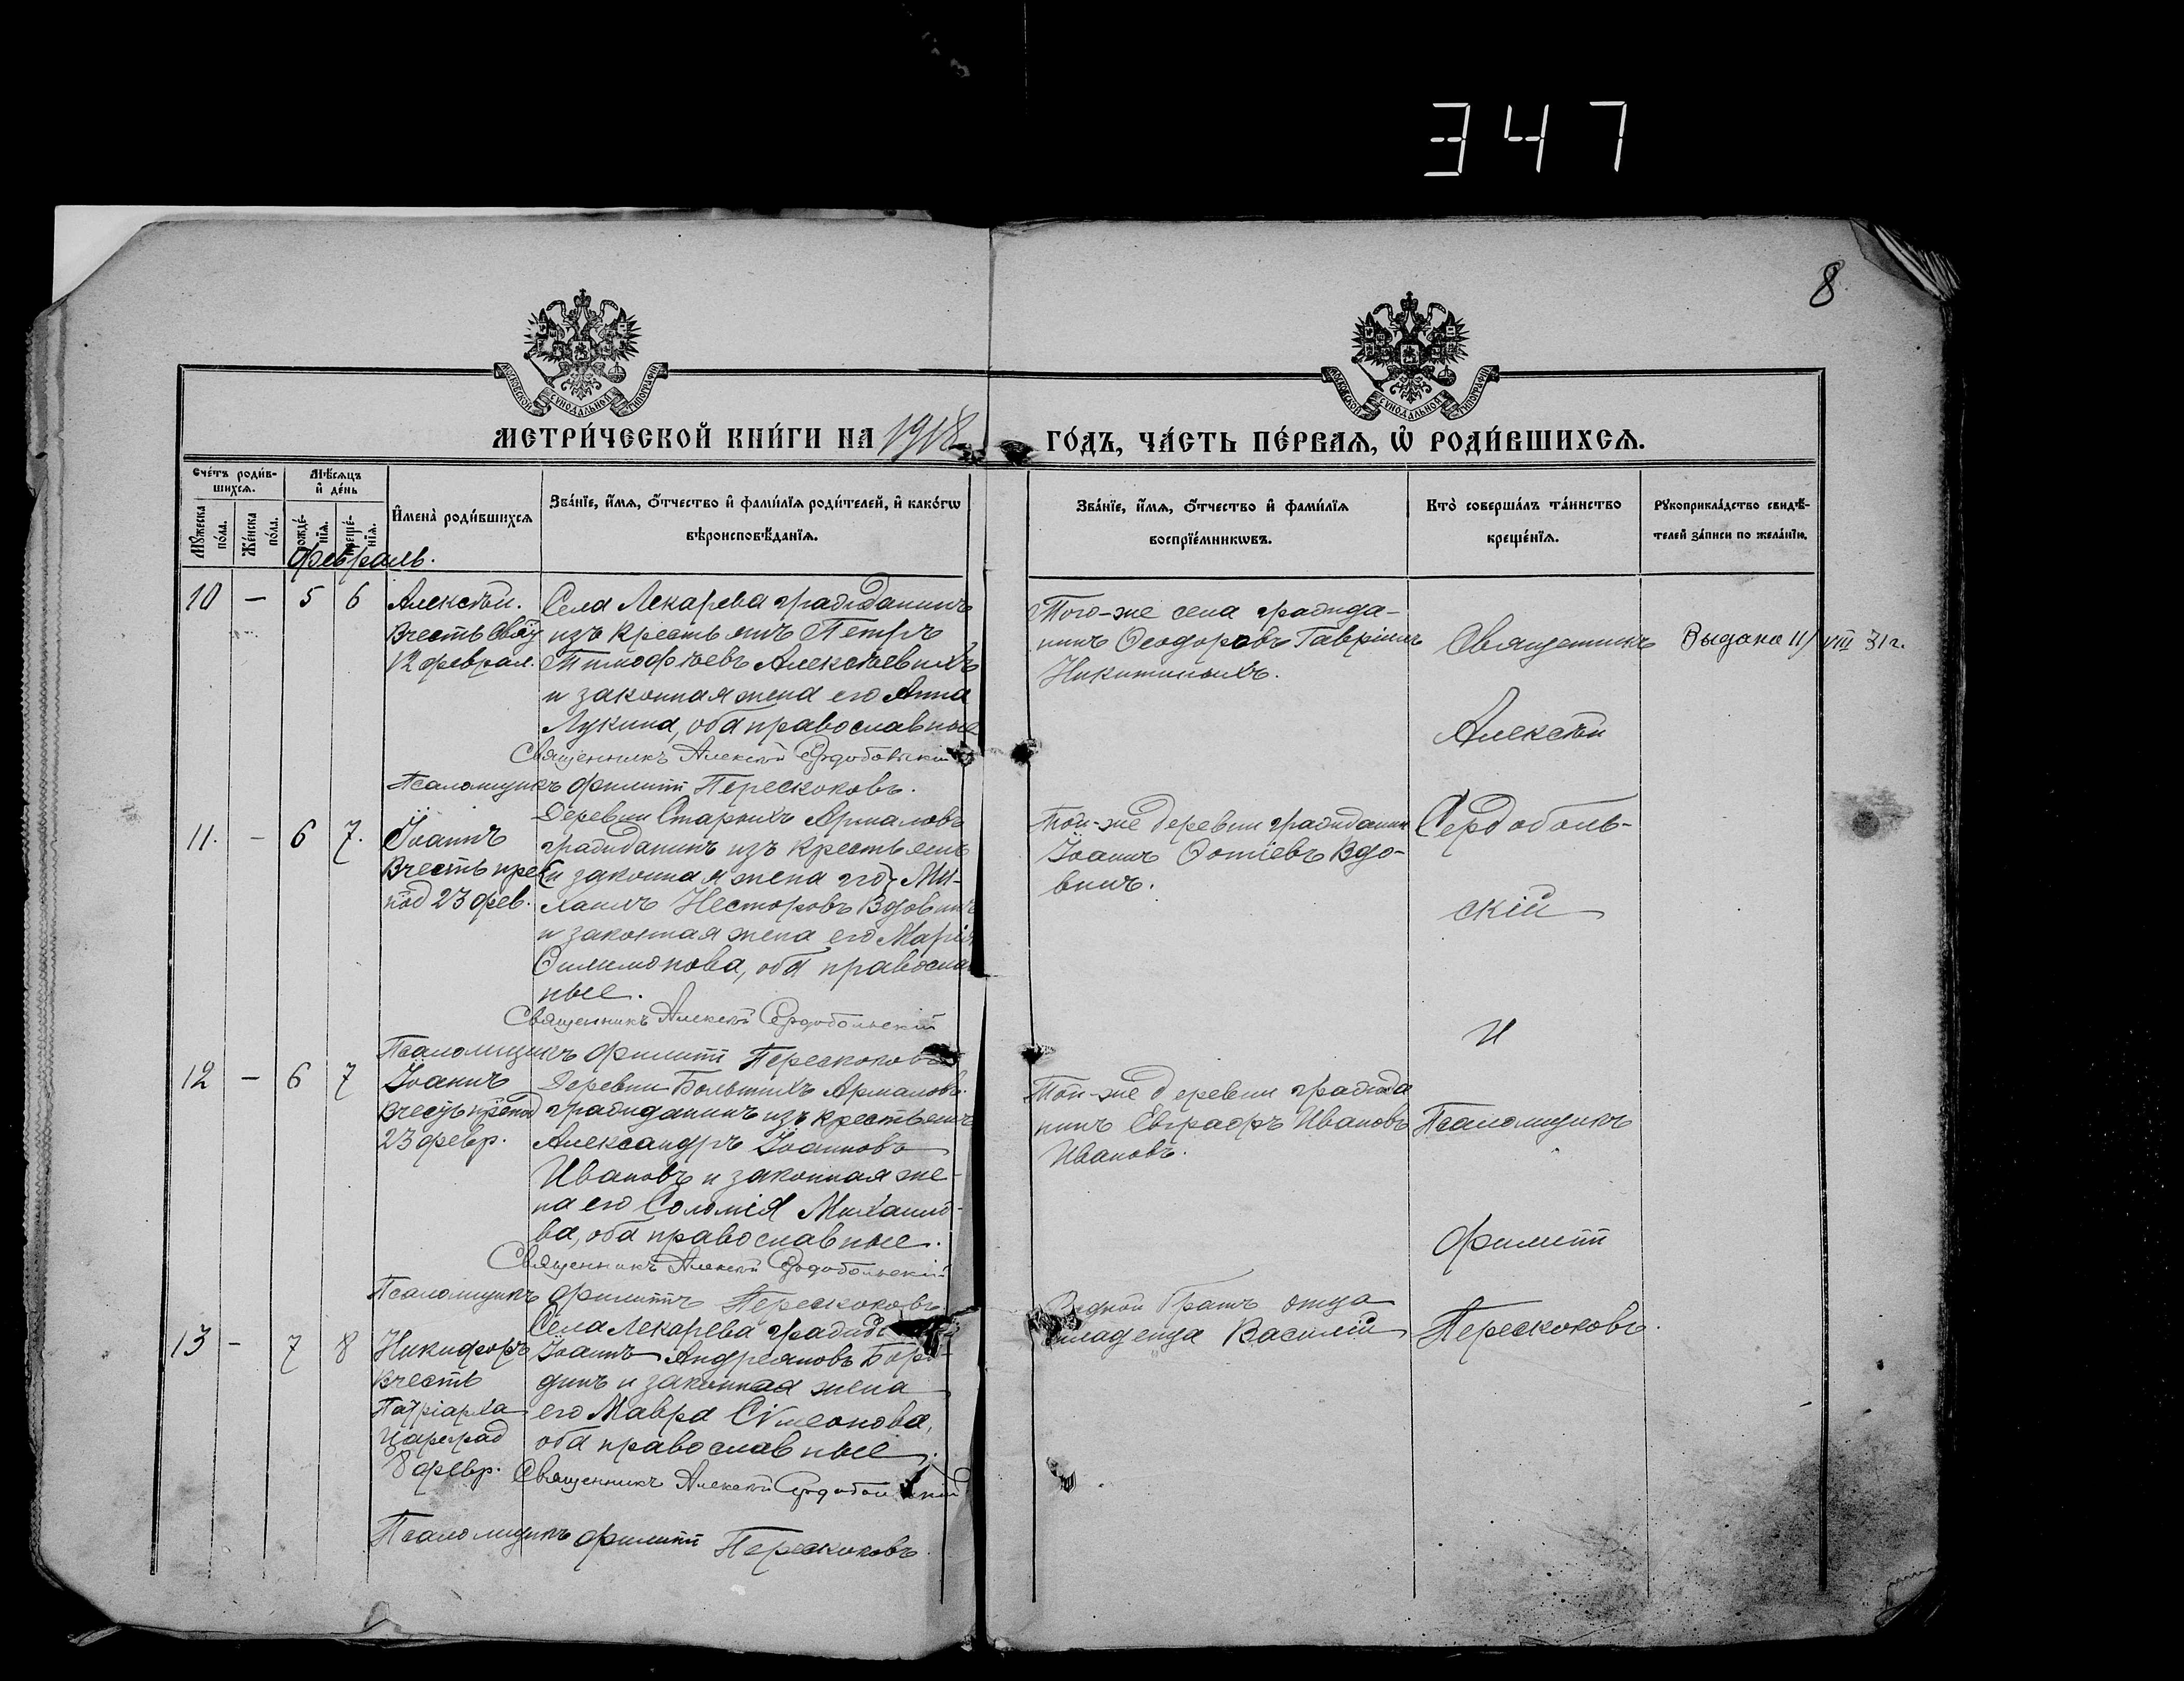 347
8
МЕТРИ́ЧЕСКОЙ КНИ́ГИ НА 1918 ГО́ДЪ, ЧА́СТЬ ПЕ́РВАЯ, Ѡ҆ РОДИ́ВШИХСЯ.
Сче́тъ роди́в-
шихся.
Мѣ́сяцъ
и҆ де́нь
Мꙋ́жеска по́ла.
Же́нска по́ла.
рожде́-
нїя.
креще́-
нїя.
И҆мена̀ роди́вшихся
Зва́нїе, и҆́мя, ѻ҆́тчество и҆ фами́лїя роди́телей, и҆ како́гѡ
вѣроисповѣ́данїя.
Зва́нїе, и҆́мя, ѻ҆́тчество и҆ фами́лїя
воспрїе́мникѡвъ.
Кто̀ соверша́лъ та́инство
креще́нїя.
Рꙋкоприкла́дство свидѣ́-
телей за́писи по жела́нїю.
Февраль.
10 — 5 6 Алексѣй.
Вчесть Свят
12 феврал.
Села Лекарева гражданинъ
изъ крестьянъ Петръ
Тимофѣевъ Алексѣевыхъ
и законная жена его Анна
Лукина, оба православные
Священникъ Алексѣй Сердобольскій
Псаломщикъ Филиппъ Перескоковъ.
Того-же села гражда-
нинъ Ѳеодоровъ Гавріилъ
Никитиныхъ.
Священникъ
Алексѣй
Сердоболь-
скій
и
Псаломщикъ
Филиппъ
Перескоковъ.
Выдано 11/VIII 31 г.
11. — 6 7. Іоаннъ
Вчесть преп
под 23 фев.
Деревни Старыхъ Армаловъ
гражданинъ изъ крестьянъ
(и законная жена его) Ми-
хаилъ Несторовъ Вдовинъ
и законная жена его Марія
Филимонова, оба православ
ные.
Священникъ Алексѣй Сердобольскій
Псаломщикъ Филиппъ Перескоковъ
Той-же деревни гражданинъ
Іоаннъ Ѳотіевъ Вдо-
винъ.
12 — 6 7 Іоаннъ
Вчесть препод
23 февр.
Деревни Большихъ Армаловъ.
гражданинъ изъ крестьянъ
Александръ Іоанновъ
Ивановъ и законная же-
на его Соломія Михаило-
ва, оба православные.
Священникъ Алексѣй Сердобольскій
Псаломщикъ Филиппъ Перескоковъ
Той-же деревни гражда
нинъ Евграфъ Ивановъ
Ивановъ.
13 — 7 8 Никифоръ
Вчесть
Патріарха
Цареград
8 февр.
Села Лекарева гражд
Іоаннъ Андреяновъ Боро-
динъ и законная жена
его Мавра Сімеонова,
оба православные.
Священникъ Алексѣй Сердобольскій
Псаломщикъ Филиппъ Перескоковъ
Родной братъ отца
младенца Василій